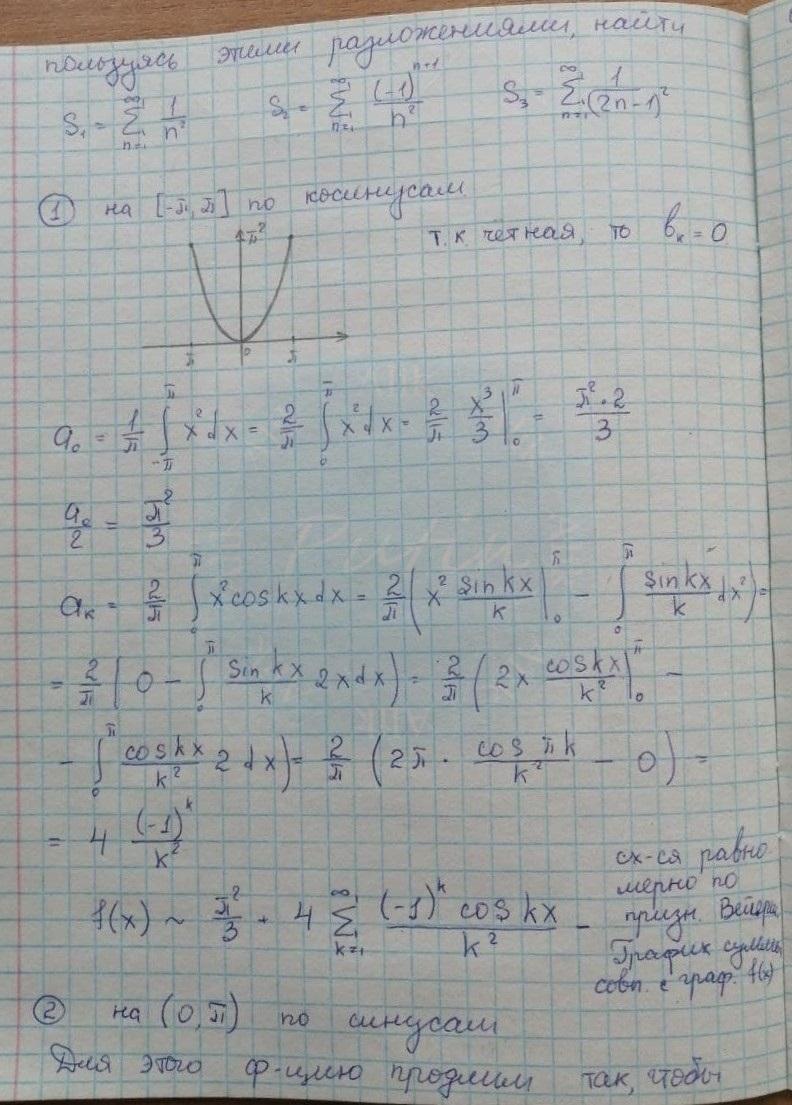 пользуясь этими разложениями, найти
S₁ = ∑_{n=1}^{∞} 1/n² S₂ = ∑_{n=1}^{∞} (-1)^{n+1}/n² S₃ = ∑_{n=1}^{∞} 1/(2n-1)²
① на [-π, π] по косинусам
π²
т.к. чётная, то b_k = 0
π 0 π
a₀ = 1/π ∫_{-π}^{π} x² dx = 2/π ∫_{0}^{π} x² dx = 2/π x³/3 |_{0}^{π} = π²·2/3
a₀/2 = π²/3
a_k = 2/π ∫_{0}^{π} x² cos kx dx = 2/π ( x² sin kx/k |_{0}^{π} - ∫_{0}^{π} sin kx/k dx² ) =
= 2/π ( 0 - ∫_{0}^{π} sin kx/k 2x dx ) = 2/π ( 2x cos kx/k² |_{0}^{π} -
- ∫_{0}^{π} cos kx/k² 2 dx ) = 2/π ( 2π · cos πk/k² - 0 ) =
= 4 (-1)^k/k²
f(x) ~ π²/3 + 4 ∑_{k=1}^{∞} (-1)^k cos kx/k² -
сх-ся равно
мерно по
призн. Вейерш
График суммы
совп. с граф. f(x)
② на (0, π) по синусам
Для этого ф-цию продлим так, чтобы